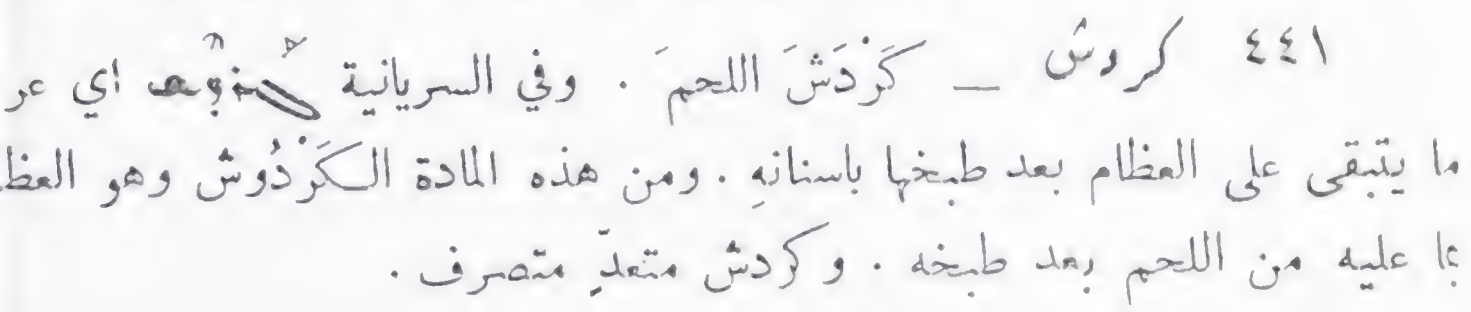 ٤٤١ كردش — كَرْدَشَ اللحمَ . وفي السريانية ܓܪܕܫ اي عر
ما يتبقى على العظام بعد طبخها باسنانهِ . ومن هذه المادة الكَرْدُوش وهو العظ
بما عليه من اللحم بعد طبخه . وكردش متعدٍّ متصرف .